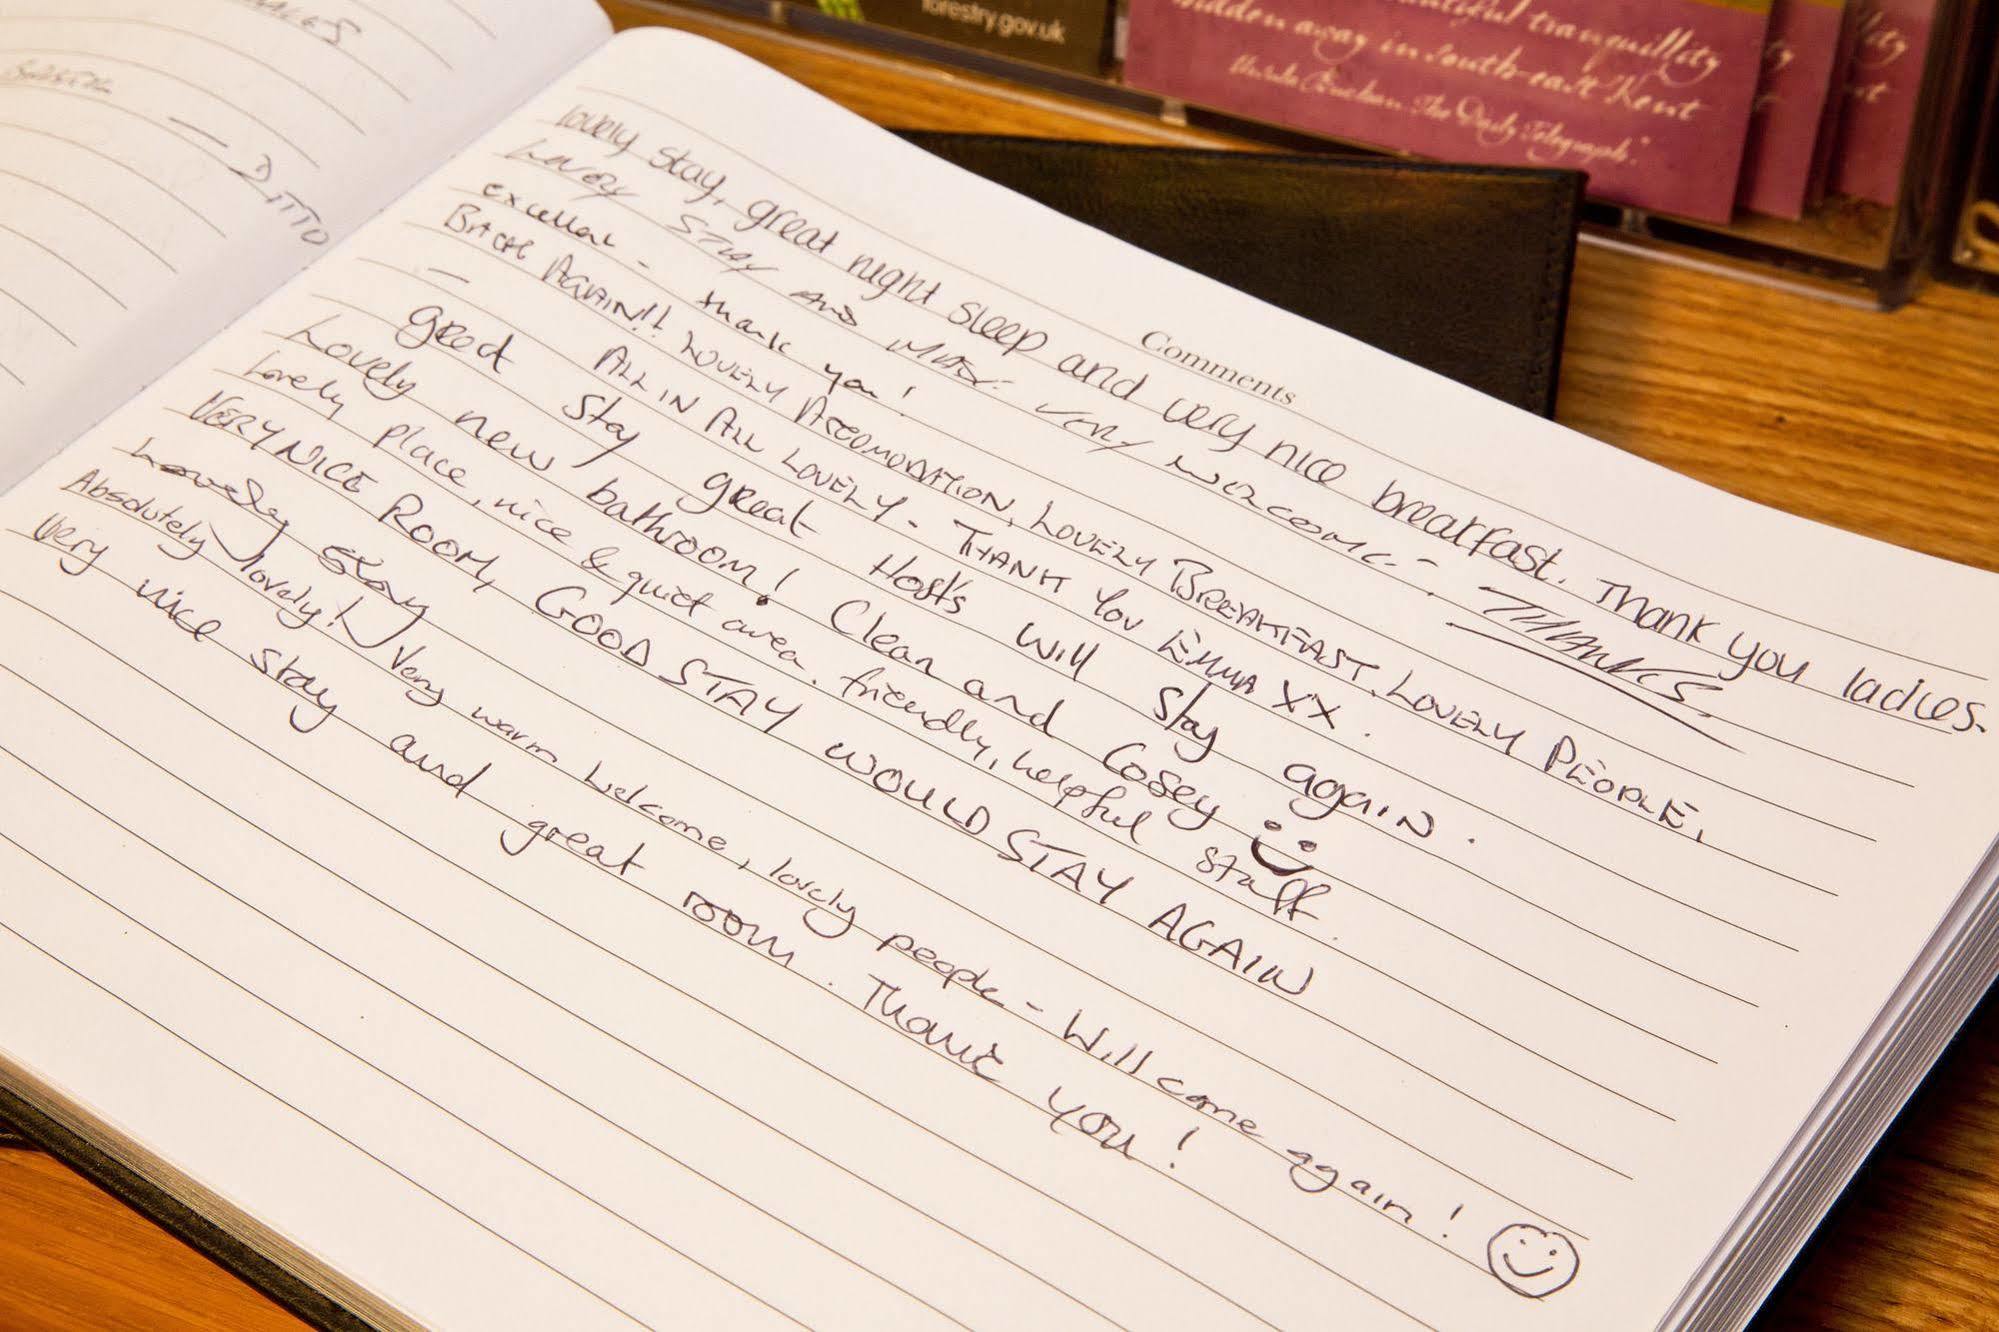 forestry.gov.uk
tranquillity
hidden away in South-east Kent
The Daily Telegraph
— DITTO
Comments
lovely stay, great night sleep and very nice breakfast. Thank you ladies.
Lovely STAY AND VERY WELCOME. - THANKS.
excellent - thank you!
BACK AGAIN!! LOVELY ACCOMODATION, LOVELY BREAKFAST, LOVELY PEOPLE,
— ALL IN ALL LOVELY - THANK YOU EMMA XX.
great stay great Hosts will stay again.
Lovely new bathroom! Clean and Cosey
Lovely place, nice & quiet area. friendly, helpful staff.
VERY NICE ROOM, GOOD STAY WOULD STAY AGAIN
Lovely stay
Absolutely lovely! Very warm welcome, lovely people - Will come again!
Very nice stay and great room. Thank you!